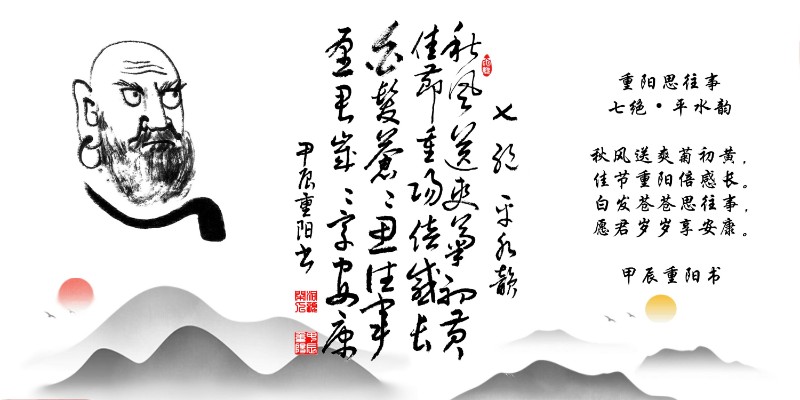 七绝 平水韵
秋风送爽菊初黄
佳节重阳倍感长
白发苍苍思往事
愿君岁岁享安康
甲辰重阳书
重阳思往事
七绝·平水韵
秋风送爽菊初黄，
佳节重阳倍感长。
白发苍苍思往事，
愿君岁岁享安康。
甲辰重阳书